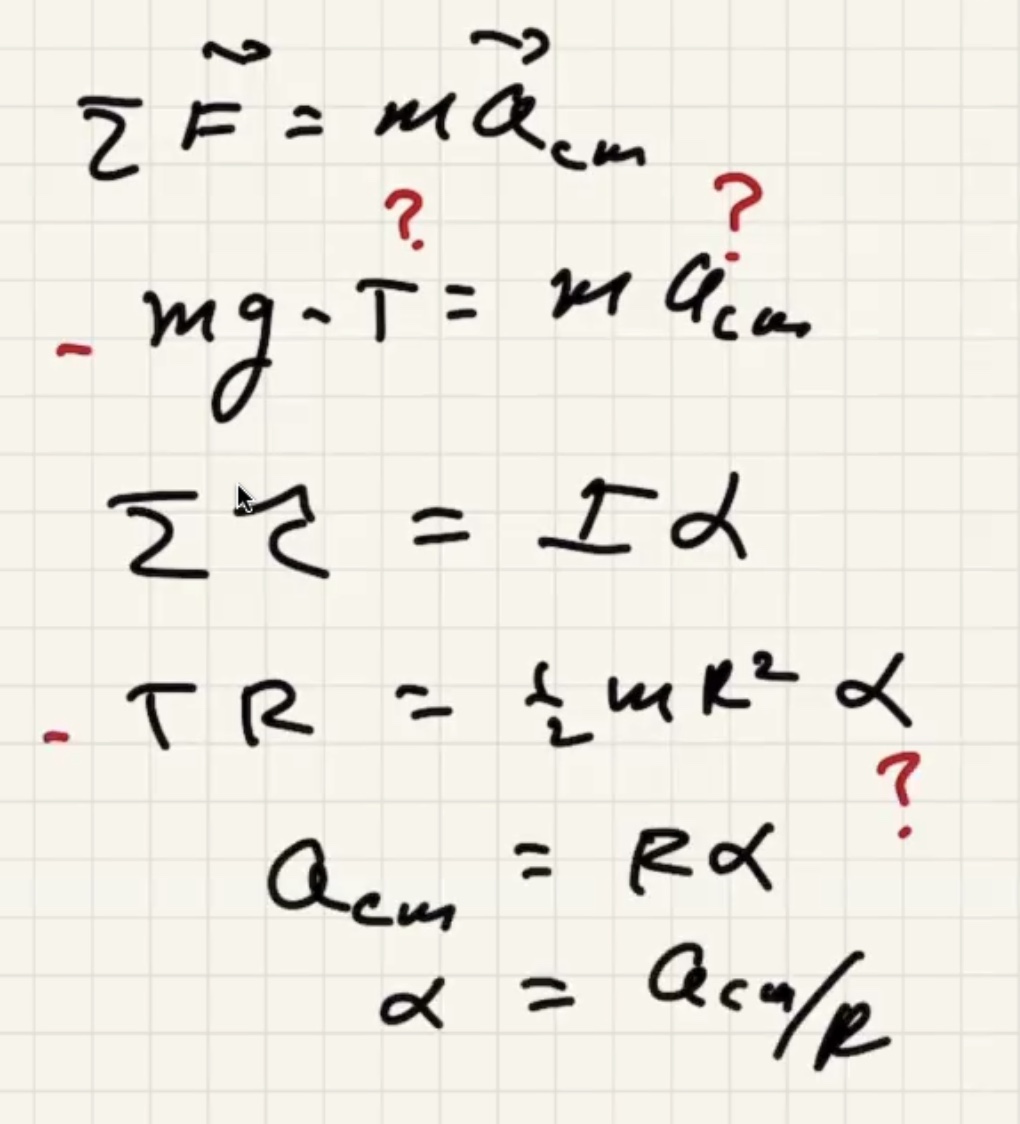 Σ F⃗ = m a⃗cm
? ?
- mg - T = m acm
Σ τ = I α
- T R = ½ m R² α
?
acm = R α
α = acm/R